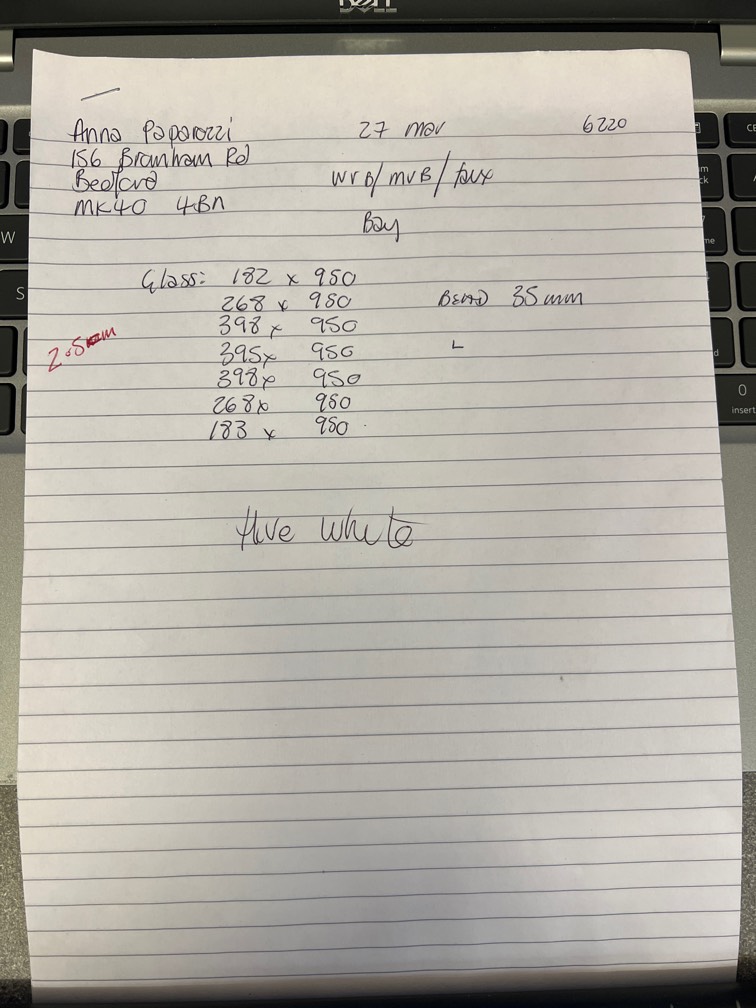 DELL
Anna Paparozzi
27 mar
6220
156 Bromham Rd
Bedford
WVB/MVB/faux
MK40 4BN
Bay
Glass: 182 x 950
268 x 950
BEAD 35mm
398 x 950
395x 950
L
2.5mm
398x 950
268x 950
183 x 950
White
W
S
0
insert